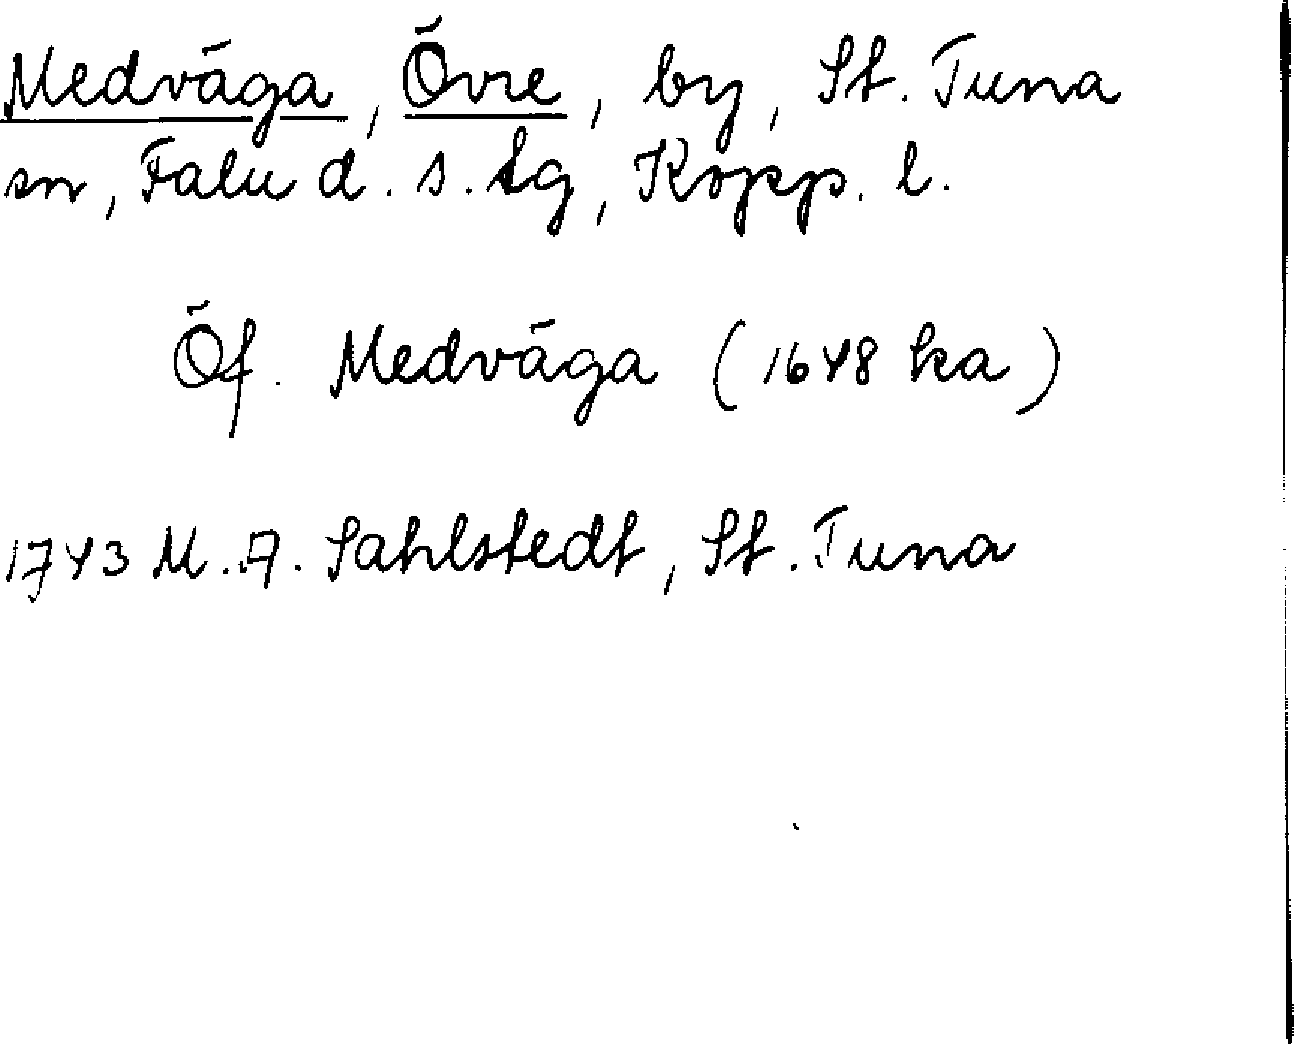 Medväga, Övre, by, St. Tuna
sn, Falu d. s. tg, Kopp. l.
Öf. Medväga (1648 ka)
1743 M. A. Sahlstedt, St. Tuna